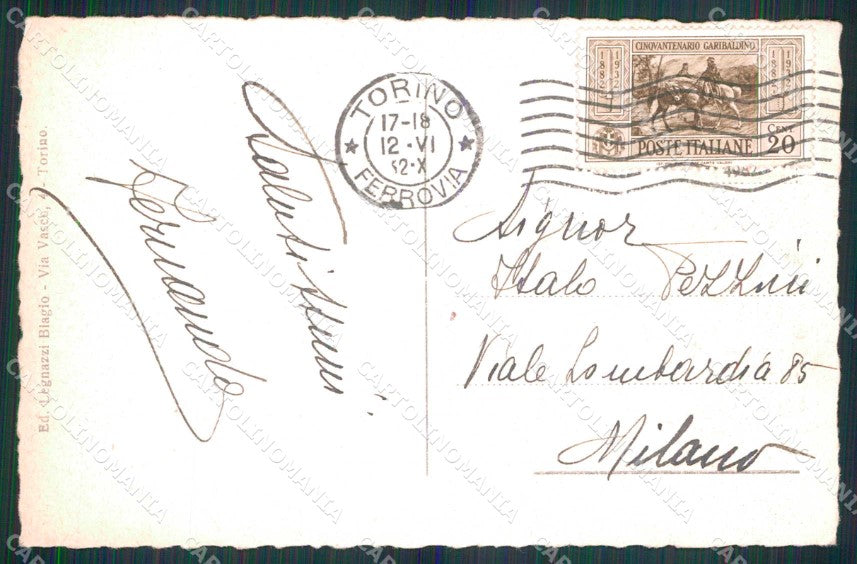 Ed. Legnazzi Biagio - Via Vasco, 4 - Torino.
Salutissimi
Fernando
TORINO
17-18
12·VI
32·X
FERROVIA
CINQVANTENARIO GARIBALDINO
1882
POSTE ITALIANE
CENT
20
Signor
Italo Pezzini
Viale Lombardia 85
Milano
CARTOLINOMANIA